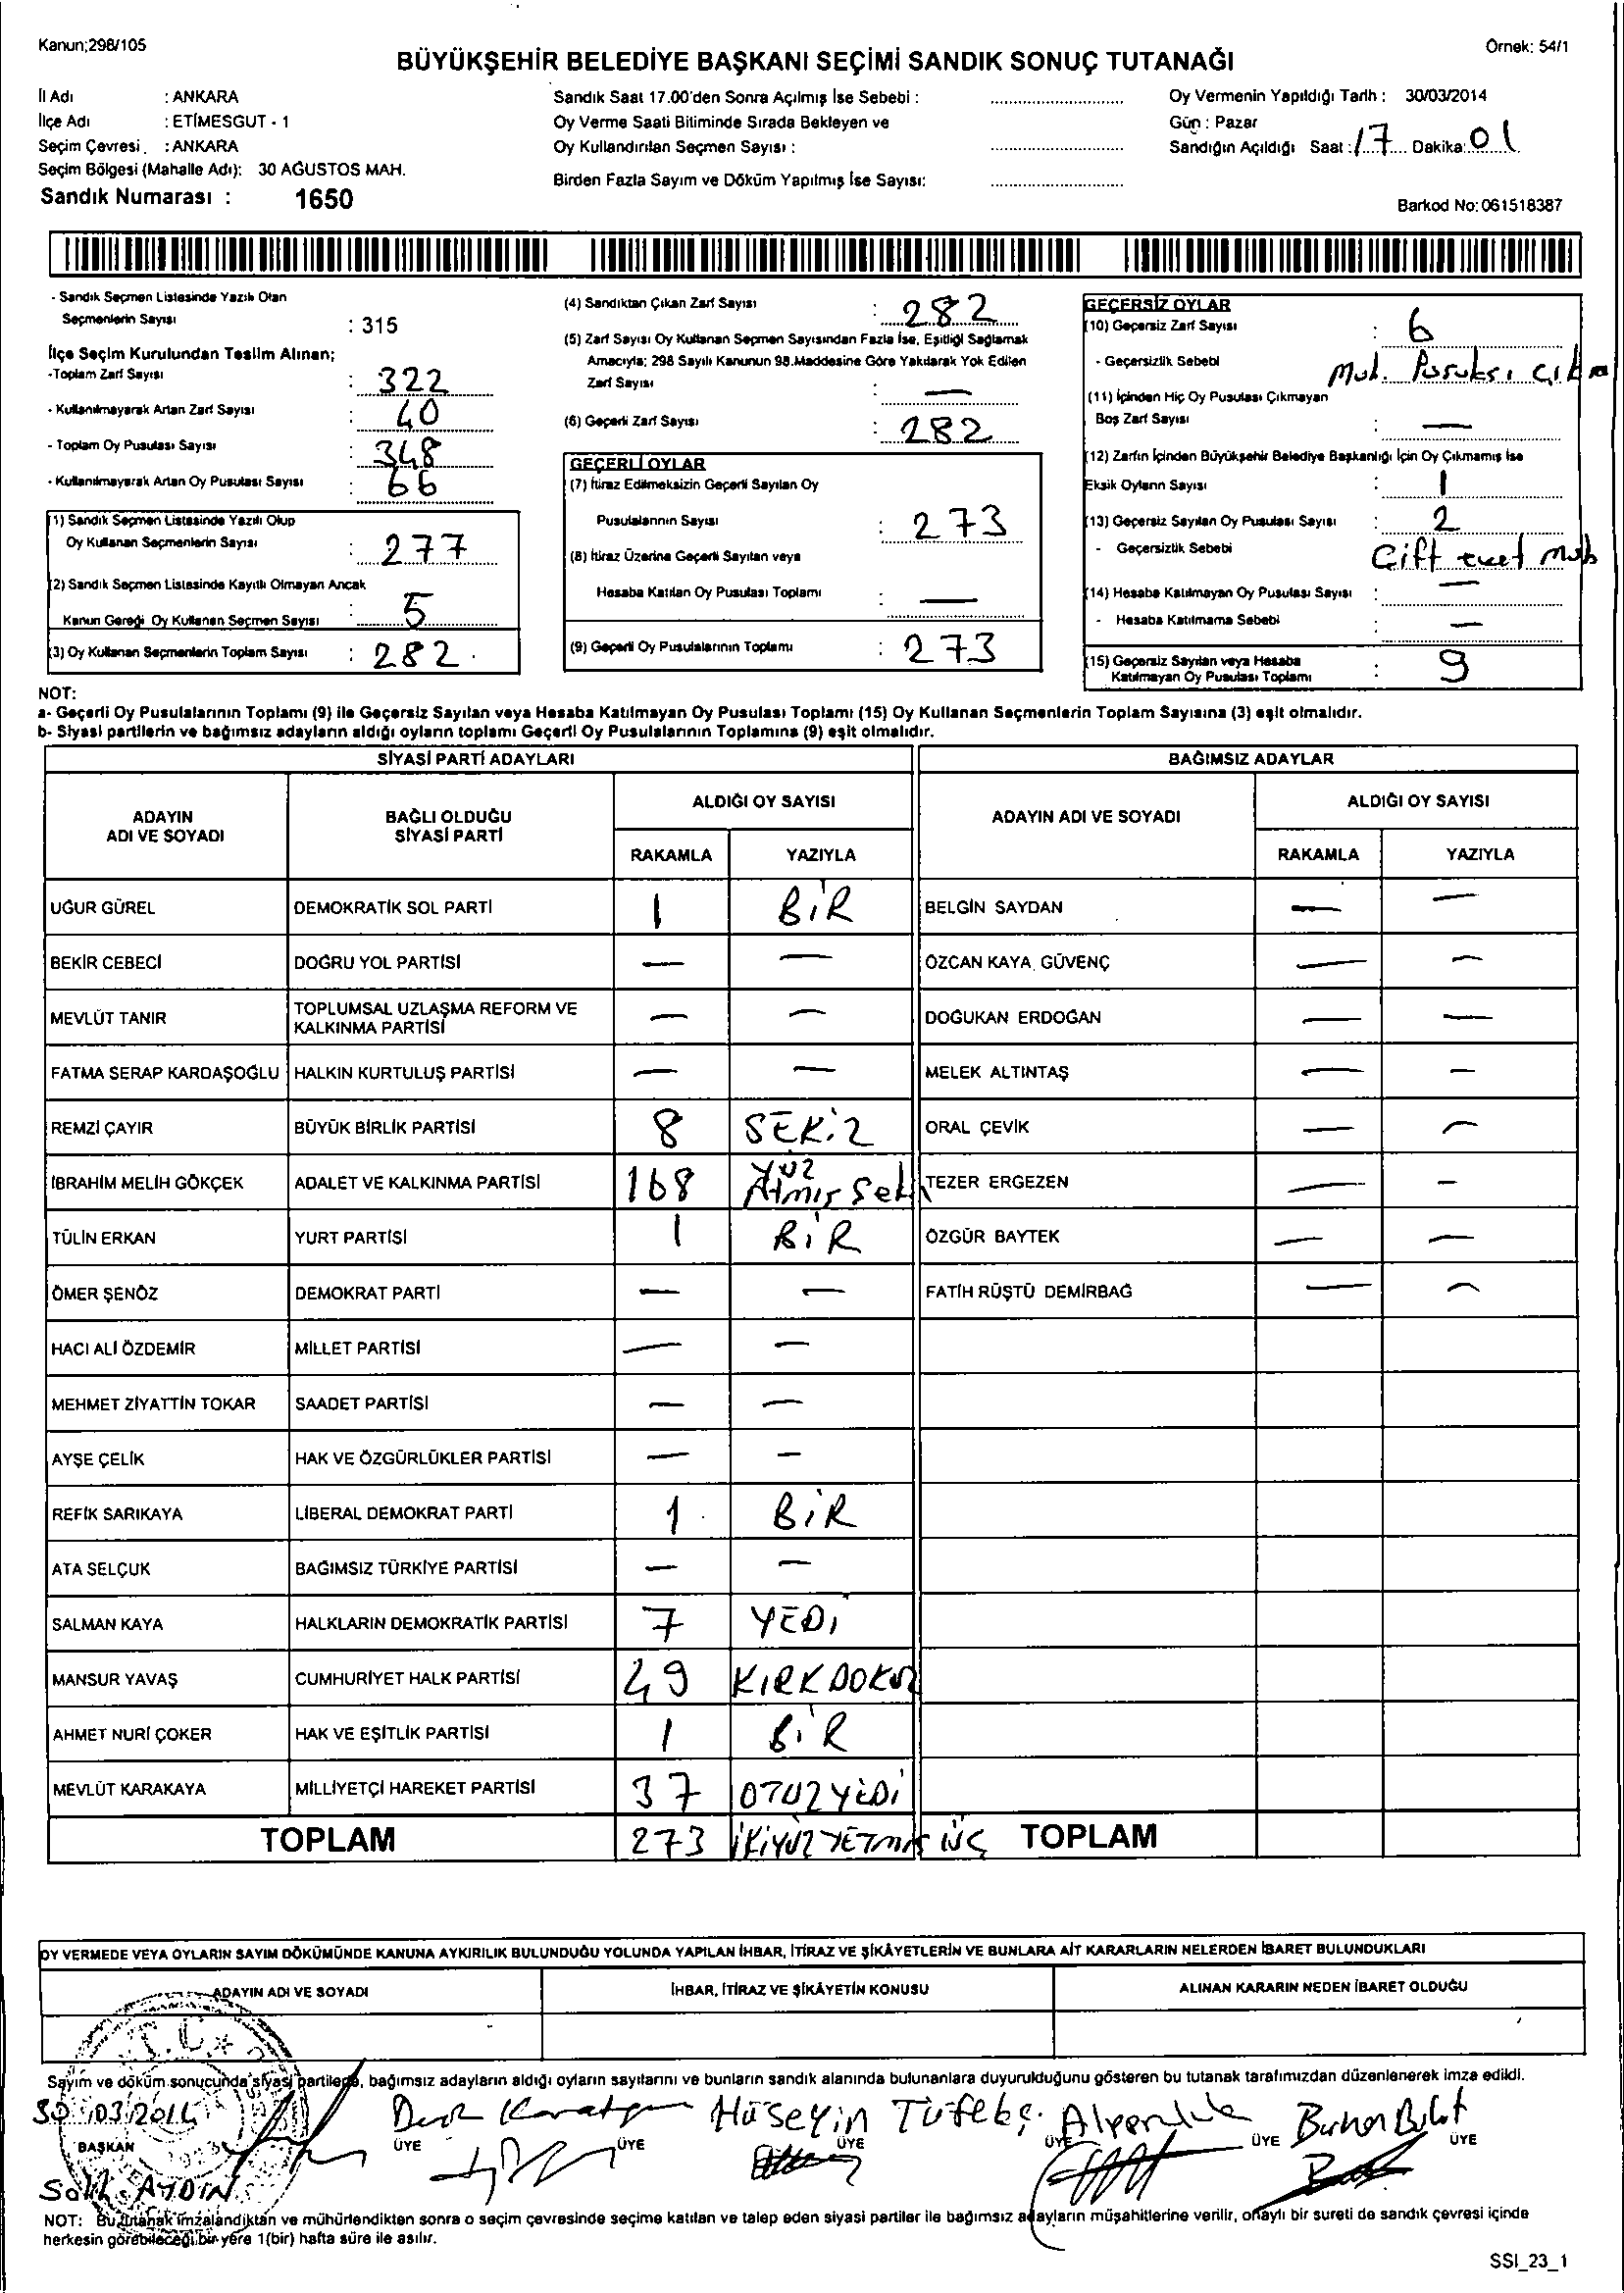 Kanun;298/105
Örnek: 54/1
BÜYÜKŞEHİR BELEDİYE BAŞKANI SEÇİMİ SANDIK SONUÇ TUTANAĞI
İl Adı : ANKARA
İlçe Adı : ETİMESGUT - 1
Seçim Çevresi : ANKARA
Seçim Bölgesi (Mahalle Adı): 30 AĞUSTOS MAH.
Sandık Numarası : 1650
Sandık Saat 17.00'den Sonra Açılmış İse Sebebi :
Oy Verme Saati Bitiminde Sırada Bekleyen ve
Oy Kullandırılan Seçmen Sayısı :
Birden Fazla Sayım ve Döküm Yapılmış İse Sayısı:
Oy Vermenin Yapıldığı Tarih : 30/03/2014
Gün : Pazar
Sandığın Açıldığı Saat : 17 Dakika: 01
Barkod No: 061518387
- Sandık Seçmen Listesinde Yazılı Olan
Seçmenlerin Sayısı : 315
İlçe Seçim Kurulundan Teslim Alınan;
-Toplam Zarf Sayısı : 322
- Kullanılmayarak Artan Zarf Sayısı : 40
- Toplam Oy Pusulası Sayısı : 348
- Kullanılmayarak Artan Oy Pusulası Sayısı : 66
(1) Sandık Seçmen Listesinde Yazılı Olup
Oy Kullanan Seçmenlerin Sayısı : 277
(2) Sandık Seçmen Listesinde Kayıtlı Olmayan Ancak
Kanun Gereği Oy Kullanan Seçmen Sayısı : 5
(3) Oy Kullanan Seçmenlerin Toplam Sayısı : 282
(4) Sandıktan Çıkan Zarf Sayısı : 282
(5) Zarf Sayısı Oy Kullanan Seçmen Sayısından Fazla İse, Eşitliği Sağlamak
Amacıyla; 298 Sayılı Kanunun 98.Maddesine Göre Yakılarak Yok Edilen
Zarf Sayısı : —
(6) Geçerli Zarf Sayısı : 282
GEÇERLİ OYLAR
(7) İtiraz Edilmeksizin Geçerli Sayılan Oy
Pusulalarının Sayısı : 273
(8) İtiraz Üzerine Geçerli Sayılan veya
Hesaba Katılan Oy Pusulası Toplamı : —
(9) Geçerli Oy Pusulalarının Toplamı : 273
GEÇERSİZ OYLAR
(10) Geçersiz Zarf Sayısı : 6
- Geçersizlik Sebebi Muh. Pusulası Çıkma
(11) İçinden Hiç Oy Pusulası Çıkmayan
Boş Zarf Sayısı : —
(12) Zarfın İçinden Büyükşehir Belediye Başkanlığı İçin Oy Çıkmamış İse
Eksik Oyların Sayısı : 1
(13) Geçersiz Sayılan Oy Pusulası Sayısı : 2
- Geçersizlik Sebebi Çift evet
(14) Hesaba Katılmayan Oy Pusulası Sayısı : —
- Hesaba Katılmama Sebebi : —
(15) Geçersiz Sayılan veya Hesaba
Katılmayan Oy Pusulası Toplamı : 9
NOT:
a- Geçerli Oy Pusulalarının Toplamı (9) ile Geçersiz Sayılan veya Hesaba Katılmayan Oy Pusulası Toplamı (15) Oy Kullanan Seçmenlerin Toplam Sayısına (3) eşit olmalıdır.
b- Siyasi partilerin ve bağımsız adayların aldığı oyların toplamı Geçerli Oy Pusulalarının Toplamına (9) eşit olmalıdır.
SİYASİ PARTİ ADAYLARI BAĞIMSIZ ADAYLAR
ADAYIN ADI VE SOYADI BAĞLI OLDUĞU SİYASİ PARTİ ALDIĞI OY SAYISI ADAYIN ADI VE SOYADI ALDIĞI OY SAYISI
RAKAMLA YAZIYLA RAKAMLA YAZIYLA
UĞUR GÜREL DEMOKRATİK SOL PARTİ 1 BİR BELGİN SAYDAN — —
BEKİR CEBECİ DOĞRU YOL PARTİSİ — — ÖZCAN KAYA GÜVENÇ — —
MEVLÜT TANIR TOPLUMSAL UZLAŞMA REFORM VE KALKINMA PARTİSİ — — DOĞUKAN ERDOĞAN — —
FATMA SERAP KARDAŞOĞLU HALKIN KURTULUŞ PARTİSİ — — MELEK ALTINTAŞ — —
REMZİ ÇAYIR BÜYÜK BİRLİK PARTİSİ 8 SEKİZ ORAL ÇEVİK — —
İBRAHİM MELİH GÖKÇEK ADALET VE KALKINMA PARTİSİ 168 YÜZ Atmış Seki TEZER ERGEZEN — —
TÜLİN ERKAN YURT PARTİSİ 1 BİR ÖZGÜR BAYTEK — —
ÖMER ŞENÖZ DEMOKRAT PARTİ — — FATİH RÜŞTÜ DEMİRBAĞ — —
HACI ALİ ÖZDEMİR MİLLET PARTİSİ — —
MEHMET ZİYATTİN TOKAR SAADET PARTİSİ — —
AYŞE ÇELİK HAK VE ÖZGÜRLÜKLER PARTİSİ — —
REFİK SARIKAYA LİBERAL DEMOKRAT PARTİ 1 BİR
ATA SELÇUK BAĞIMSIZ TÜRKİYE PARTİSİ — —
SALMAN KAYA HALKLARIN DEMOKRATİK PARTİSİ 7 YEDİ
MANSUR YAVAŞ CUMHURİYET HALK PARTİSİ 49 KIRKDOKUZ
AHMET NURİ ÇOKER HAK VE EŞİTLİK PARTİSİ 1 BİR
MEVLÜT KARAKAYA MİLLİYETÇİ HAREKET PARTİSİ 37 OTUZYEDİ
TOPLAM 273 İKİYÜZYETMİŞ ÜÇ TOPLAM
OY VERMEDE VEYA OYLARIN SAYIM DÖKÜMÜNDE KANUNA AYKIRILIK BULUNDUĞU YOLUNDA YAPILAN İHBAR, İTİRAZ VE ŞİKÂYETLERİN VE BUNLARA AİT KARARLARIN NELERDEN İBARET BULUNDUKLARI
ADAYIN ADI VE SOYADI İHBAR, İTİRAZ VE ŞİKÂYETİN KONUSU ALINAN KARARIN NEDEN İBARET OLDUĞU
T.C.
Sayım ve döküm sonucunda siyasi partilerin, bağımsız adayların aldığı oyların sayılarını ve bunların sandık alanında bulunanlara duyurulduğunu gösteren bu tutanak tarafımızdan düzenlenerek imza edildi.
30/03/2014 Hüseyin Bulut
BAŞKAN ÜYE ÜYE ÜYE ÜYE ÜYE ÜYE
Salih AYDIN
NOT: Bu tutanak imzalandıktan ve mühürlendikten sonra o seçim çevresinde seçime katılan ve talep eden siyasi partiler ile bağımsız adayların müşahitlerine verilir, onaylı bir sureti de sandık çevresi içinde
herkesin görebileceği bir yere 1(bir) hafta süre ile asılır.
SSI_23_1